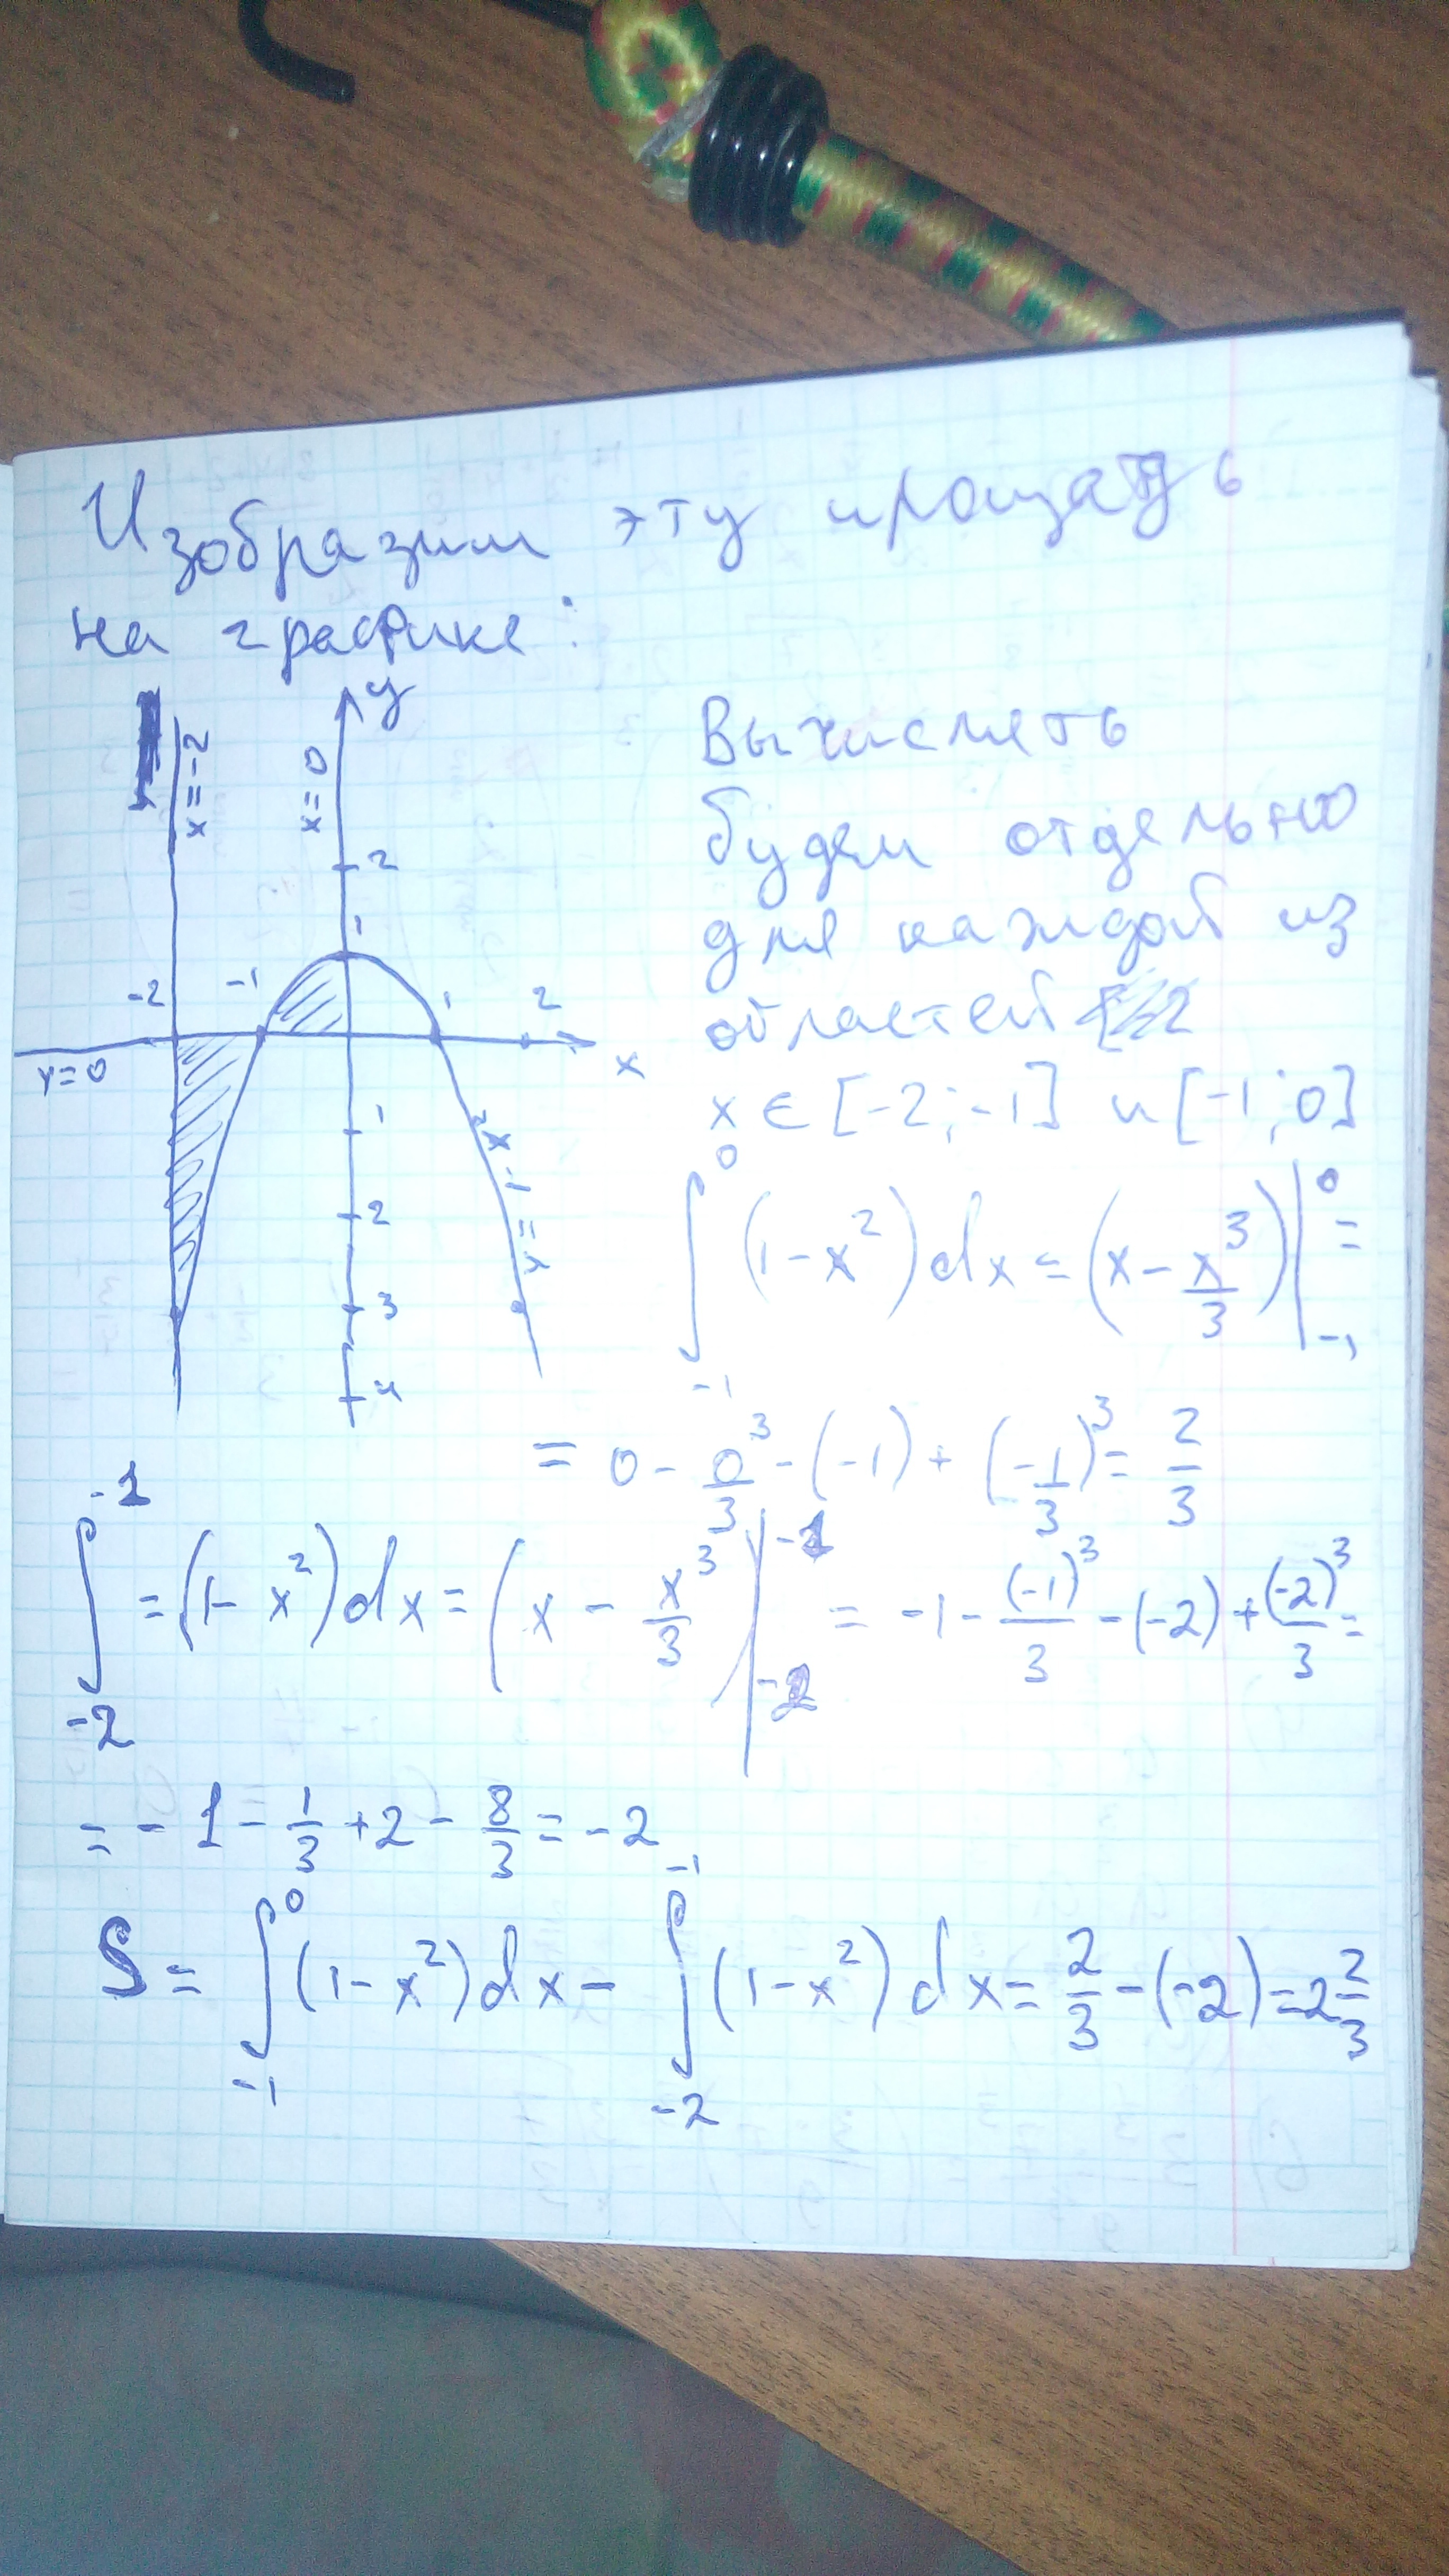 Изобразим эту площадь
на графике:
y
x=-2
x=0
2
1
-2
-1
1
2
y=0
x
1
2
3
4
y=1-x²
Вычислять
будем отдельно
для каждой из
областей
x∈[-2;-1] и [-1;0]
∫₋₁⁰ (1-x²)dx=(x-x³/3)|₋₁⁰ =
= 0 - 0³/3 -(-1)+(-1/3)³= 2/3
∫₋₂⁻¹ =(1-x²)dx=(x - x³/3)|₋₂⁻¹ = -1-(-1)³/3-(-2)+(-2)³/3=
= -1-1/3+2-8/3=-2
S= ∫₋₁⁰ (1-x²)dx- ∫₋₂⁻¹ (1-x²)dx=2/3-(-2)=2 2/3